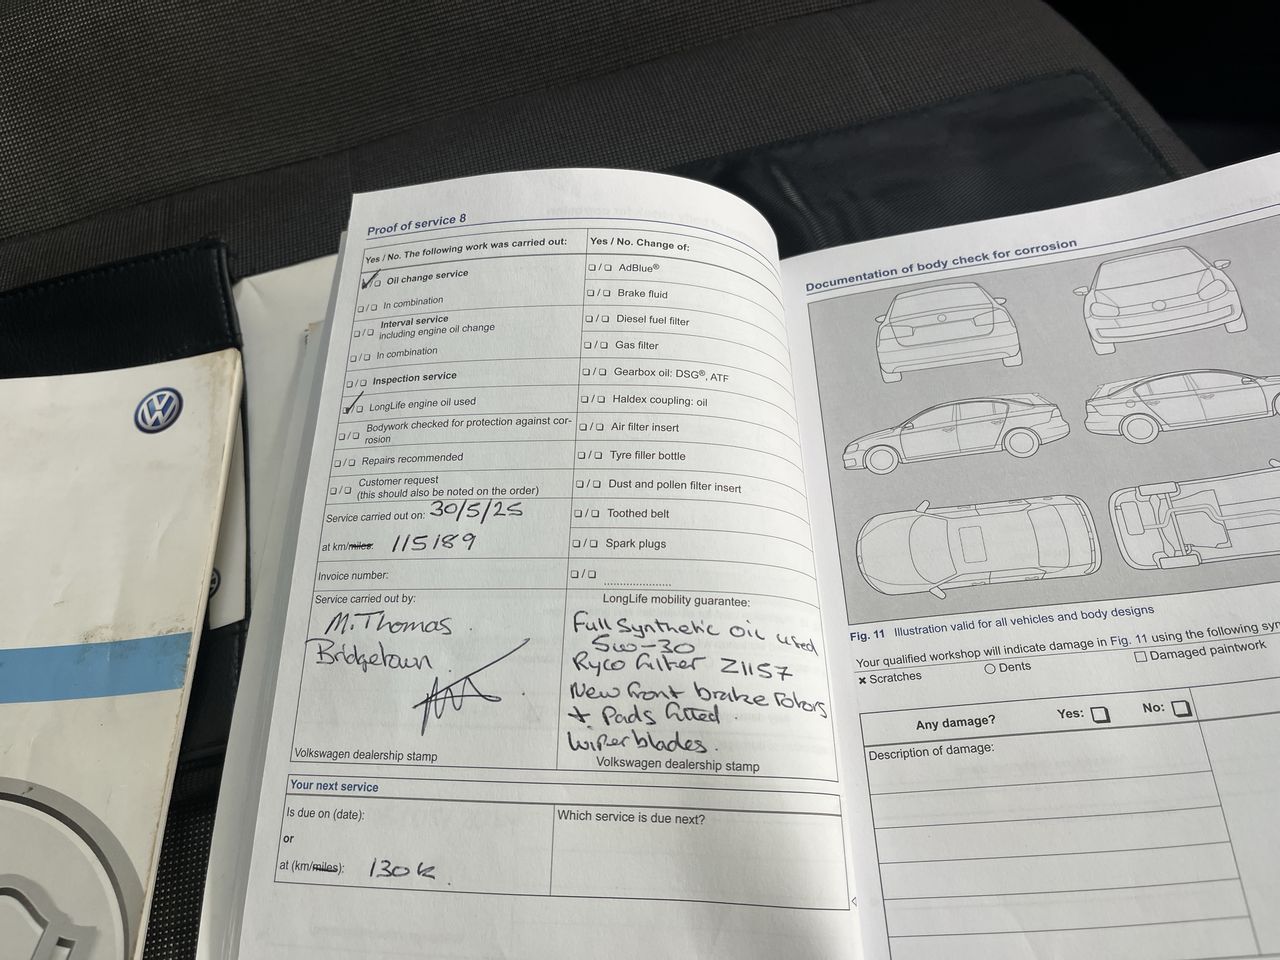 Proof of service 8
Yes / No. The following work was carried out:
Oil change service
In combination
Interval service
including engine oil change
In combination
Inspection service
LongLife engine oil used
Bodywork checked for protection against cor-
rosion
Repairs recommended
Customer request
(this should also be noted on the order)
Service carried out on: 30/5/25
at km/miles: 115189
Invoice number:
Service carried out by:
M. Thomas
Bridgetown
Volkswagen dealership stamp
Yes / No. Change of:
AdBlue®
Brake fluid
Diesel fuel filter
Gas filter
Gearbox oil: DSG®, ATF
Haldex coupling: oil
Air filter insert
Tyre filler bottle
Dust and pollen filter insert
Toothed belt
Spark plugs
LongLife mobility guarantee:
Full Synthetic oil used
5w-30
Ryco Filter Z1157
New front brake Rotors
+ Pads fitted
Wiper blades.
Volkswagen dealership stamp
Your next service
Is due on (date):
or
at (km/miles): 130k
Which service is due next?
Documentation of body check for corrosion
Fig. 11 Illustration valid for all vehicles and body designs
Your qualified workshop will indicate damage in Fig. 11 using the following
× Scratches ○ Dents □ Damaged paintwork
Any damage? Yes: No:
Description of damage: